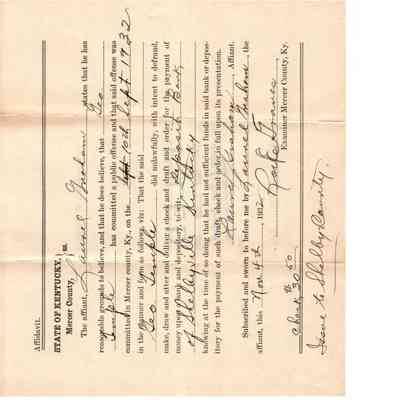 Affidavit.
STATE OF KENTUCKY,
Mercer County, ss.
The affiant, Laurel Graham states that he has
reasonable grounds to believe, and that he does believe, that Geo
Temple has committed a public offense and that said offense was
committed in Mercer county, Ky., on the 10th Sept 1932
in the manner and form as follows, viz: That the said
Geo Temple did unlawfully, with intent to defraud,
make, draw and utter and deliver a check and draft and order for the payment of
money upon a bank and depository, to-wit, Deposit Bank
of Shelbyville Kentucky
knowing at the time of so doing that he had not sufficient funds in said bank or depos-
itory for the payment of such draft, check and order in full upon its presentation.
Laurel Graham, Affiant.
Subscribed and sworn to before me by Laurel Graham the
affiant, this Nov 4th 1932
Examiner Mercer County, Ky.
check $30.50
Issue to Shelby County